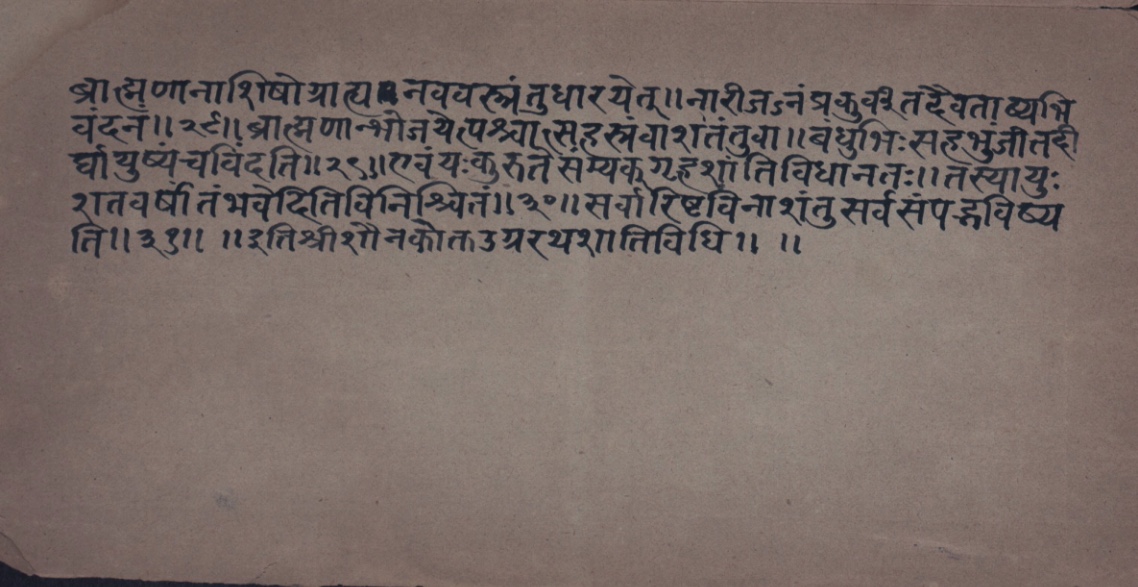 ब्राह्मणानाशिषोग्राह्य नववस्त्रंतुधारयेत्॥नारीजऽनंप्रकुर्वीतदैवताष्यभि
वंदनं॥२८॥ब्राह्मणान्भोजयेत्पश्चात्सहस्त्रंवाशतंतुवा॥बधुभिःसहभुजीतदी
र्घायुष्यंचविंदति॥२९॥एवंयःकुरुतेसम्यक्गृहशांतिविधानतः॥तस्यायुः
शतवर्षांतंभवेदितिविनिश्चितं॥३०॥सर्वारिष्टविनाशंतुसर्वसंपद्भविष्य
ति॥३१॥ ॥इतिश्रीशौनकोक्तउग्ररथशातिविधि॥ ॥